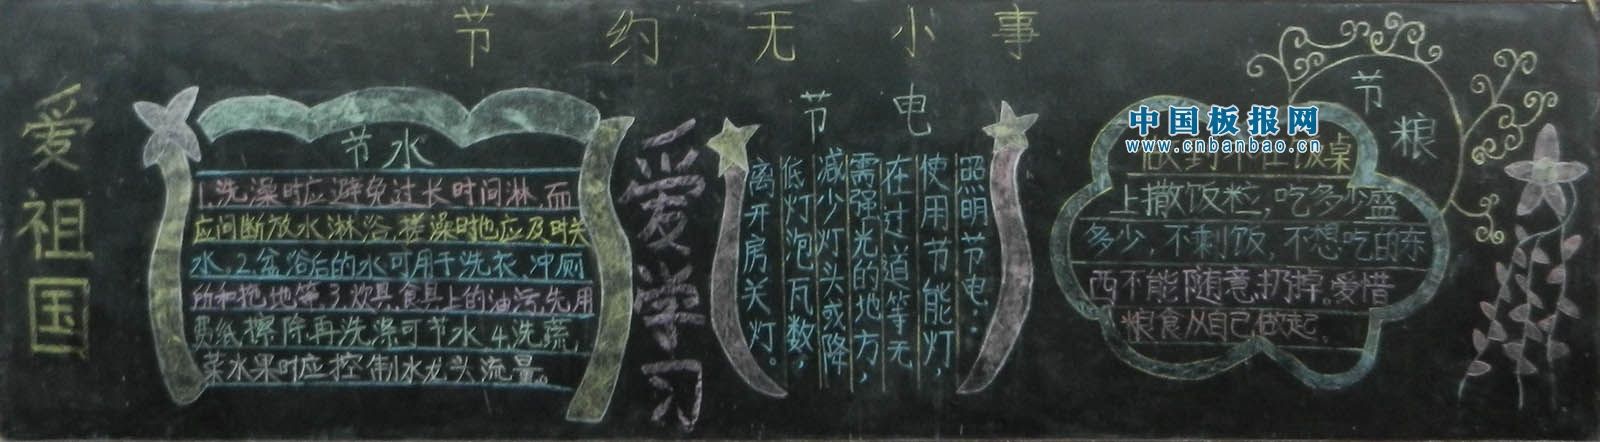 节约无小事
爱祖国
节水
1.洗澡时应避免过长时间淋,而
应间断放水淋浴,搓澡时也应及时关
水,2.盆浴后的水可用于洗衣,冲厕
所和拖地等.3.炊具,食具上的油污,先用
费纸擦除再洗涤可节水4.洗蔬,
菜水果时应控制水龙头流量。
爱学习
节电
照明节电:
使用节能灯,
在过道等无
需强光的地方,
减少灯头或降
低灯泡瓦数,
离开房关灯。
节粮
中国板报网
www.cnbanbao.cn
做到不在饭桌
上撒饭粒,吃多少盛
多少,不剩饭,不想吃的东
西不能随意扔掉。爱惜
粮食从自己做起。